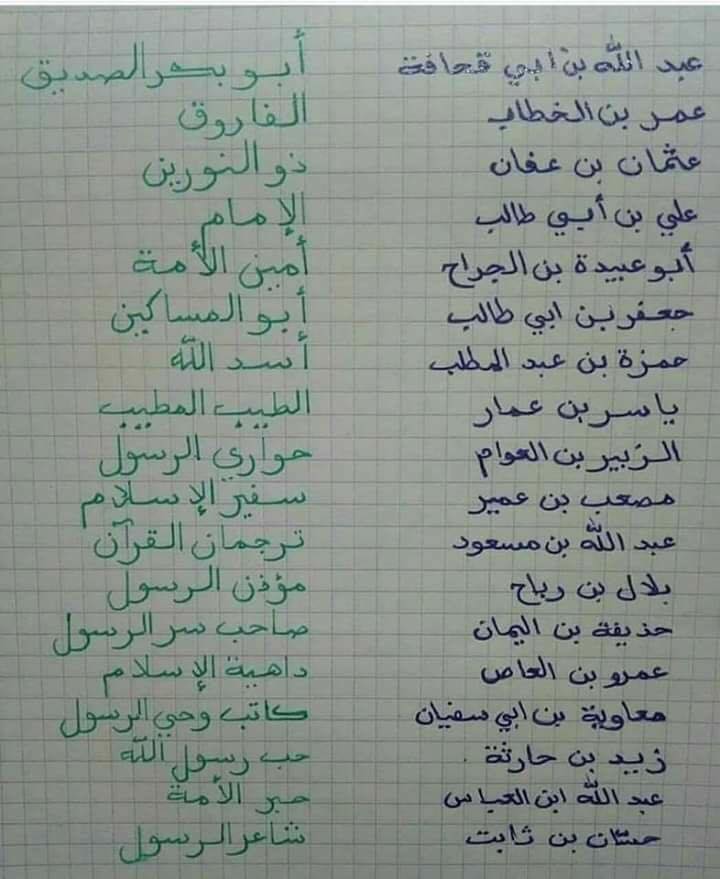 عبد الله بن ابي قحافة أبو بكر الصديق
عمر بن الخطاب الفاروق
عثمان بن عفان ذو النورين
علي بن أبي طالب الإمام
أبو عبيدة بن الجراح أمين الأمة
جعفر بن ابي طالب أبو المساكين
حمزة بن عبد المطلب أسد الله
ياسر بن عمار الطيب المطيب
الزبير بن العوام حواري الرسول
مصعب بن عمير سفير الإسلام
عبد الله بن مسعود ترجمان القرآن
بلال بن رباح مؤذن الرسول
حذيفة بن اليمان صاحب سر الرسول
عمرو بن العاص داهية الإسلام
معاوية بن ابي سفيان كاتب وحي الرسول
زيد بن حارثة حب رسول الله
عبد الله ابن العباس حبر الأمة
حسان بن ثابت شاعر الرسول